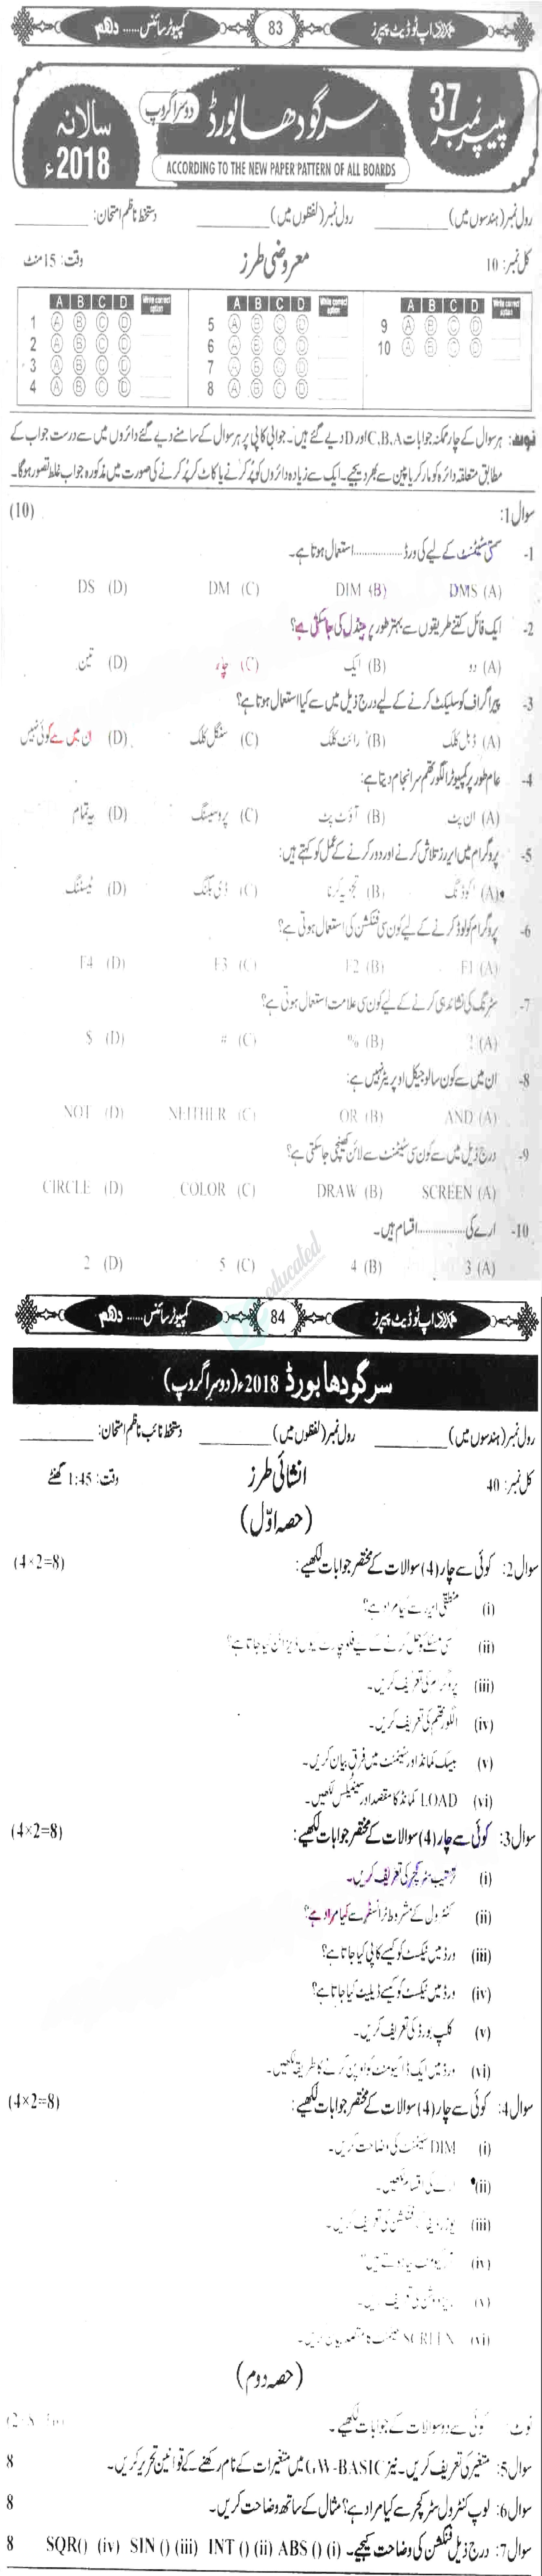 کمپیوٹر سائنس...... دھم 83 اپ ٹو ڈیٹ پیپرز
پیپر نمبر 37
سرگودھا بورڈ دوسرا گروپ
سالانہ 2018ء
ACCORDING TO THE NEW PAPER PATTERN OF ALL BOARDS
رول نمبر (ہندسوں میں) ________ رول نمبر (لفظوں میں) ________ دستخط ناظم امتحان: ________
کل نمبر: 10 معروضی طرز وقت: 15 منٹ
A B C D Write correct option A B C D Write correct option A B C D Write correct option
1 A B C D 5 A B C D 9 A B C D
2 A B C D 6 A B C D 10 A B C D
3 A B C D 7 A B C D
4 A B C D 8 A B C D
نوٹ: ہر سوال کے چار ممکنہ جوابات C,B,A اور D دیے گئے ہیں۔ جوابی کاپی پر ہر سوال کے سامنے دیے گئے دائروں میں سے درست جواب کے
مطابق متعلقہ دائرہ کو مارکر یا پین سے بھر دیجیے۔ ایک سے زیادہ دائروں کو پُر کرنے یا کاٹ کر پُر کرنے کی صورت میں مذکورہ جواب غلط تصور ہوگا۔
سوال 1: (10)
1- کسی سٹیٹمنٹ کے لیے کی ورڈ ................ استعمال ہوتا ہے۔
(A) DMS (B) DIM (C) DM (D) DS
2- ایک فائل کتنے طریقوں سے بہتر طور پر ہینڈل کی جاسکتی ہے؟
(A) دو (B) ایک (C) چار (D) تین
3- پیراگراف کو سلیکٹ کرنے کے لیے درج ذیل میں سے کیا استعمال ہوتا ہے؟
(A) ڈبل کلک (B) رائٹ کلک (C) سنگل کلک (D) ان میں سے کوئی نہیں
4- عام طور پر کمپیوٹر الگورتھم سرانجام دیتا ہے:
(A) ان پٹ (B) آؤٹ پٹ (C) پروسیسنگ (D) یہ تمام
5- پروگرام میں ایررز تلاش کرنے اور دور کرنے کے عمل کو کہتے ہیں:
(A) کوڈنگ (B) تجزیہ کرنا (C) ڈی بگنگ (D) ٹیسٹنگ
6- پروگرام کو لوڈ کرنے کے لیے کون سی فنکشن کی استعمال ہوتی ہے؟
(A) F1 (B) F2 (C) F3 (D) F4
7- سٹرنگ کی نشاندہی کرنے کے لیے کون سی علامت استعمال ہوتی ہے؟
(A) ! (B) % (C) # (D) $
8- ان میں سے کون سا لوجیکل اوپریٹر نہیں ہے:
(A) AND (B) OR (C) NEITHER (D) NOT
9- درج ذیل میں سے کون سی سٹیٹمنٹ سے لائن کھینچی جاسکتی ہے؟
(A) SCREEN (B) DRAW (C) COLOR (D) CIRCLE
10- ارے کی ................ اقسام ہیں۔
(A) 3 (B) 4 (C) 5 (D) 2
educated
کمپیوٹر سائنس...... دھم 84 اپ ٹو ڈیٹ پیپرز
سرگودھا بورڈ 2018ء (دوسرا گروپ)
رول نمبر (ہندسوں میں) ________ رول نمبر (لفظوں میں) ________ دستخط نائب ناظم امتحان: ________
کل نمبر: 40 انشائی طرز وقت: 1:45 گھنٹے
(حصہ اوّل)
سوال 2: کوئی سے چار (4) سوالات کے مختصر جوابات لکھیے: (4×2=8)
(i) منطقی ایرر سے کیا مراد ہے؟
(ii) کسی مسئلے کو حل کرنے کے لیے فلوچارٹ کیوں ڈیزائن کیا جاتا ہے؟
(iii) پروگرام کی تعریف کریں۔
(iv) الگورتھم کی تعریف کریں۔
(v) بیسک کمانڈ اور سٹیٹمنٹ میں فرق بیان کریں۔
(vi) LOAD کمانڈ کا مقصد اور سینٹیکس لکھیں۔
سوال 3: کوئی سے چار (4) سوالات کے مختصر جوابات لکھیے: (4×2=8)
(i) ترتیب سٹرکچر کی تعریف کریں۔
(ii) کنٹرول کے مشروط ٹرانسفر سے کیا مراد ہے؟
(iii) ورڈ میں ٹیکسٹ کو کیسے کاپی کیا جاتا ہے؟
(iv) ورڈ میں ٹیکسٹ کو کیسے ڈیلیٹ کیا جاتا ہے؟
(v) کلپ بورڈ کی تعریف کریں۔
(vi) ورڈ میں ایک ڈاکیومنٹ کو اوپن کرنے کا طریقہ لکھیں۔
سوال 4: کوئی سے چار (4) سوالات کے مختصر جوابات لکھیے: (4×2=8)
(i) DIM سٹیٹمنٹ کی وضاحت کریں۔
(ii) ارے کی اقسام لکھیں۔
(iii) یوزر ڈیفائنڈ فنکشن کی تعریف کریں۔
(iv)
(v) ریزولوشن کی تعریف کریں۔
(vi) SCREEN سٹیٹمنٹ کا مقصد بیان کریں۔
(حصہ دوم)
نوٹ: کوئی سے دو سوالات کے جوابات لکھیے۔
سوال 5: متغیر کی تعریف کریں۔ نیز GW-BASIC میں متغیرات کے نام رکھنے کے قوانین تحریر کریں۔ 8
سوال 6: لوپ کنٹرول سٹرکچر سے کیا مراد ہے؟ مثال کے ساتھ وضاحت کریں۔ 8
سوال 7: درج ذیل فنکشن کی وضاحت کیجیے۔ (i) ABS () (ii) INT () (iii) SIN () (iv) SQR() 8